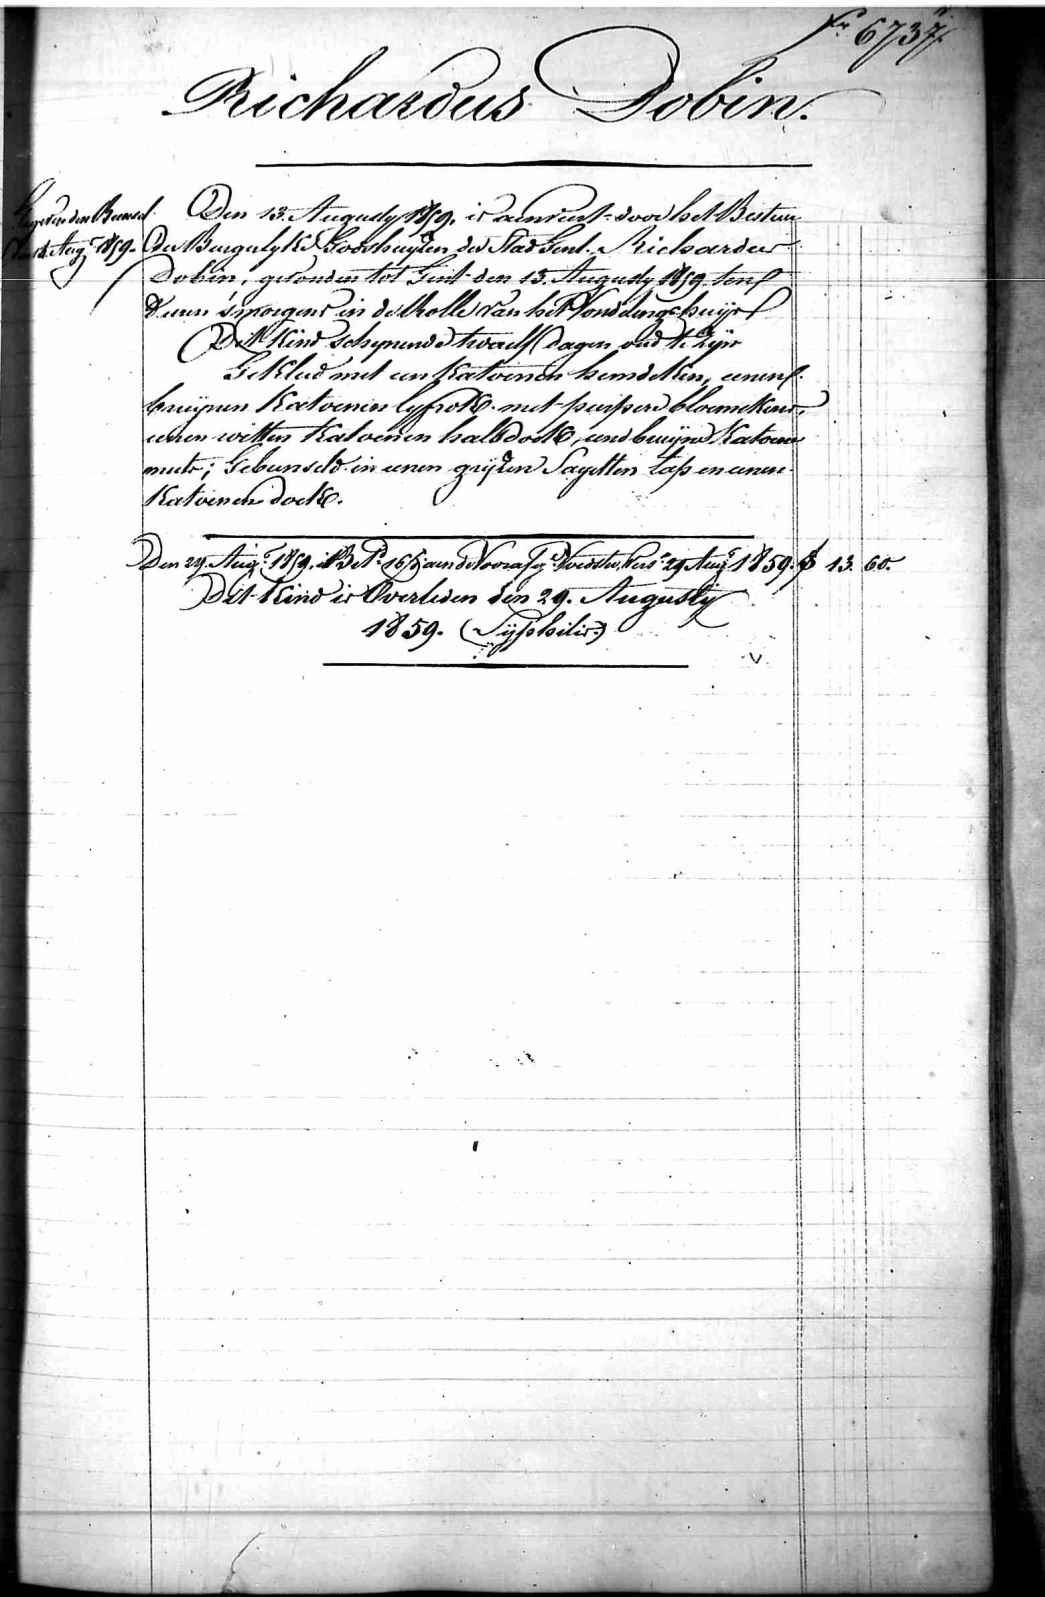 6737.
Richardus Dobin.
Den 13. Augusty 1859. is aenveert door het Bestuur
der Burgelyke Godshuyzen der Stad Gent. Richardus
Dobin, gevonden tot Gent den 13. Augusty 1859 ten
uren 's morgens in de Rolle van het Vondelinge-huys
Dit Kind schynende twaelf dagen oud te zijn
Gekleed met een Katoenen hemdeken, eenen
bruijnen Katoenen lyfrok met purpere bloemekens,
eenen witten Katoenen halsdoek, eene bruijne Katoene
muts; Gebunseld in eenen grijzen Sayetten lap en eenen
Katoenen doek.
Den 29 Aug. 1859. 29 Aug. 1859. 13. 60.
Dit Kind is Overleden den 29. Augusty
1859. (Syphilis)